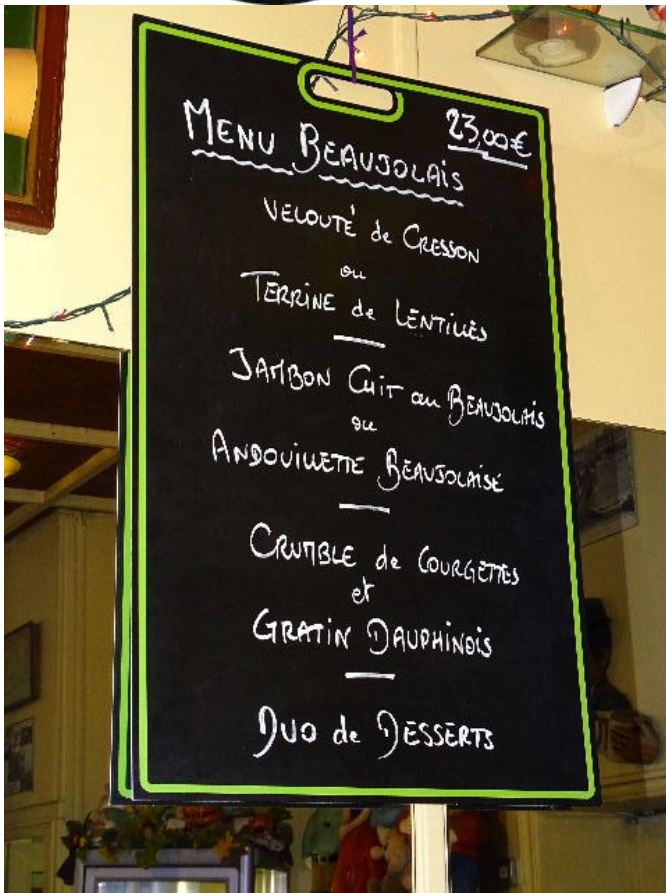 MENU BEAUJOLAIS 23,00€
VELOUTÉ de CRESSON
ou
TERRINE de LENTILLES
JAMBON CUIT au BEAUJOLAIS
ou
ANDOUILLETTE BEAUJOLAISE
CRUMBLE de COURGETTES
et
GRATIN DAUPHINOIS
DUO de DESSERTS